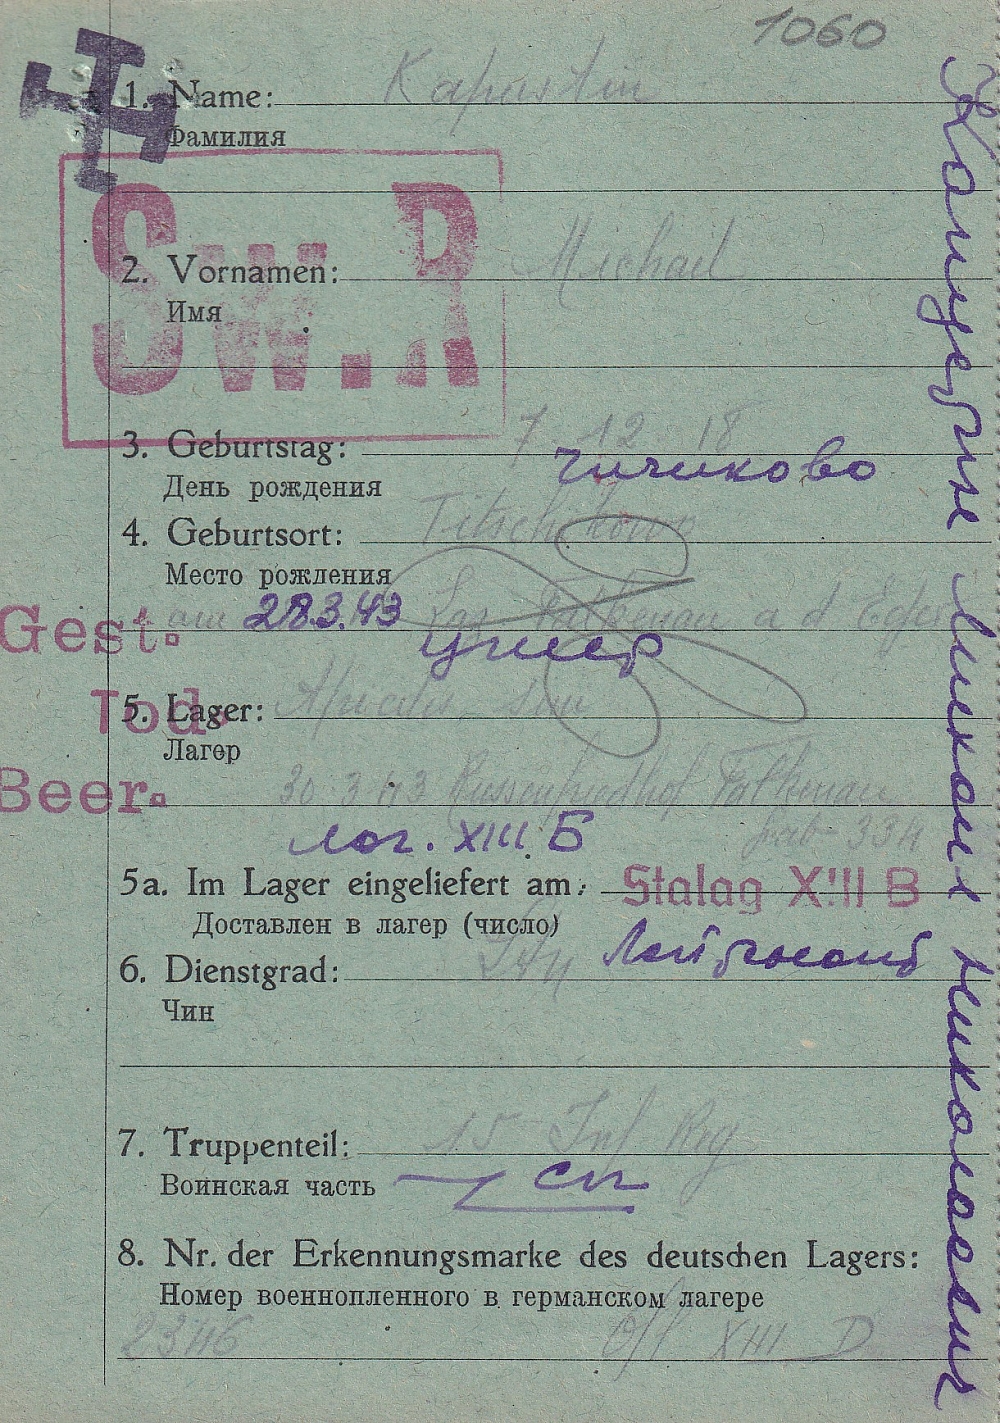 1060
1. Name: Kapustin
Фамилия
Sw.R
2. Vornamen: Michail
Имя
3. Geburtstag: 7 12 18
День рождения
чичиково
4. Geburtsort: Titschikowo
Место рождения
am 28.3.43 Laz Falkenau a d Eger
умер
Gest.
5. Lager:
Лагер
Tod.
30 3 43 Russenfriedhof Falkenau
Beer.
Grab 334
лаг. XIII Б
5a. Im Lager eingeliefert am: Stalag XIII B
Доставлен в лагер (число)
6. Dienstgrad: Ltn
Лейтенант
Чин
7. Truppenteil: 15 Inf Reg
Воинская часть
сп
8. Nr. der Erkennungsmarke des deutschen Lagers:
Номер военнопленного в германском лагере
2346 Off XIII D
Михаил